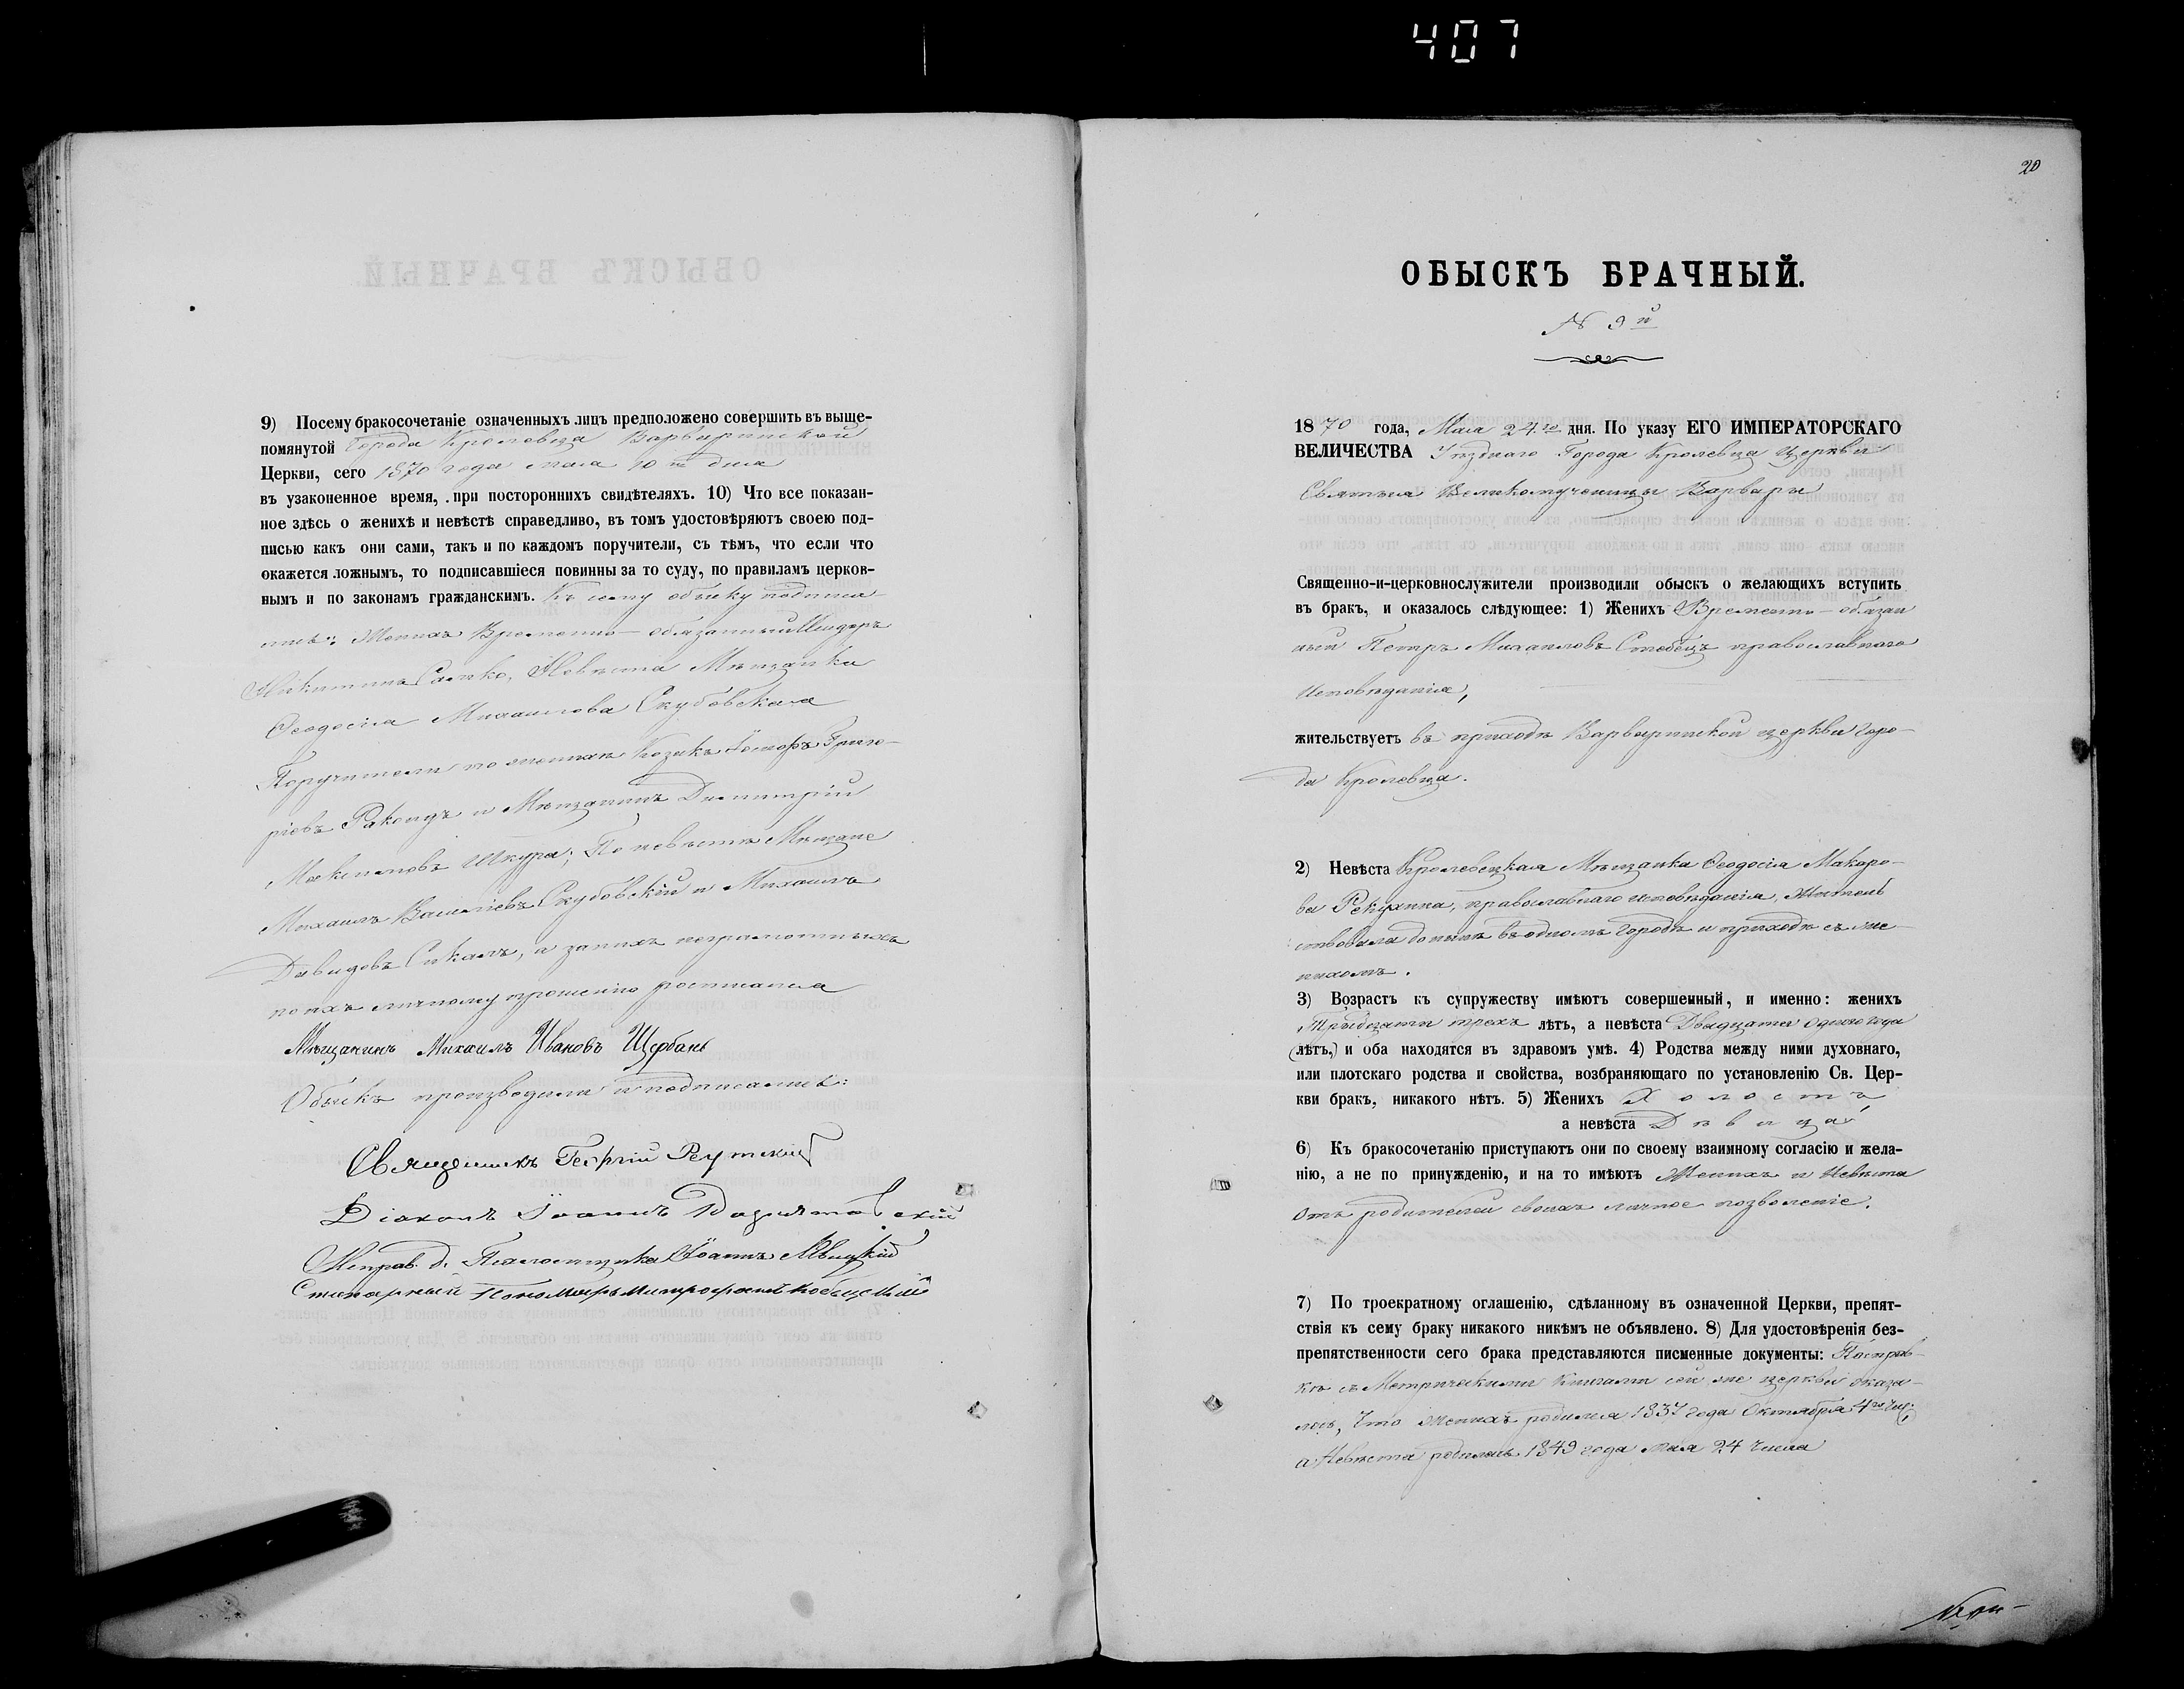 407
9) Посему бракосочетаніе означенныхъ лицъ предположено совершить въ выше-
помянутой Города Кролевца Варваринской
Церкви, сего 1870 года мая 10 го дня
въ узаконенное время, при постороннихъ свидѣтеляхъ. 10) Что все показан-
ное здѣсь о женихѣ и невѣстѣ справедливо, въ томъ удостовѣряютъ своею под-
писью какъ они сами, такъ и по каждомъ поручители, съ тѣмъ, что если что
окажется ложнымъ, то подписавшіеся повинны за то суду, по правиламъ церков-
нымъ и по законамъ гражданскимъ. Къ сему обыску подписа-
лись: Женихъ Временно-обязанный
Никитинъ Невѣста Мѣщанка
Ѳеодосія Михаилова Скубовская
Поручители по женихѣ Козакъ Іосифъ Григо-
ріевъ и Мѣщанинъ Димитрій
Шкура; По невѣстѣ Мѣщане
Михаилъ Василіевъ Скубовскій и Михаилъ
Давидовъ а за нихъ неграмотныхъ
по ихъ личному прошенію росписался
Мѣщанинъ Михаилъ Ивановъ Щербань
Обыскъ производили и подписались:
Священникъ Георгій
Діаконъ Іоаннъ
Исправ. д. Псаломщика Іоаннъ
Пономарь Митрофанъ
20
ОБЫСКЪ БРАЧНЫЙ.
№ 9 й
1870 года, Мая 24.го дня. По указу ЕГО ИМПЕРАТОРСКАГО
ВЕЛИЧЕСТВА Уѣзднаго Города Кролевца Церкви
Святыя Великомученицы Варвары
Священно-и-церковнослужители производили обыскъ о желающихъ вступить
въ бракъ, и оказалось слѣдующее: 1) Женихъ Временно-обязан
ный Петръ Михаиловъ Стебецъ православнаго
Исповѣданія,
жительствуетъ въ приходѣ Варваринской церкви горо-
да Кролевца.
2) Невѣста Кролевецкая Мѣщанка Ѳеодосія Макаро-
ва православнаго исповѣданія, Житель
ствовала до нынѣ въ одномъ городѣ и приходѣ съ же-
нихомъ.
3) Возрастъ къ супружеству имѣютъ совершенный, и именно: женихъ
Тридцати трехъ лѣтъ, а невѣста Двадцати одного года
(лѣтъ,) и оба находятся въ здравомъ умѣ. 4) Родства между ними духовнаго,
или плотскаго родства и свойства, возбраняющаго по установленію Св. Цер-
кви бракъ, никакого нѣтъ. 5) Женихъ Холостъ
а невѣста Дѣвица
6) Къ бракосочетанію приступаютъ они по своему взаимному согласію и жела-
нію, а не по принужденію, и на то имѣютъ Женихъ и Невѣста
отъ родителей своихъ личное позволеніе.
7) По троекратному оглашенію, сдѣланному въ означенной Церкви, препят-
ствія къ сему браку никакого никѣмъ не объявлено. 8) Для удостовѣренія без-
препятственности сего брака представляются писменные документы: По справ-
кѣ съ Метрическими Книгами сей же церкви оказа-
лось, что женихъ родился 1837 года Октября 4 го чис.
а Невѣста родилась 1849 года мая 24 числа